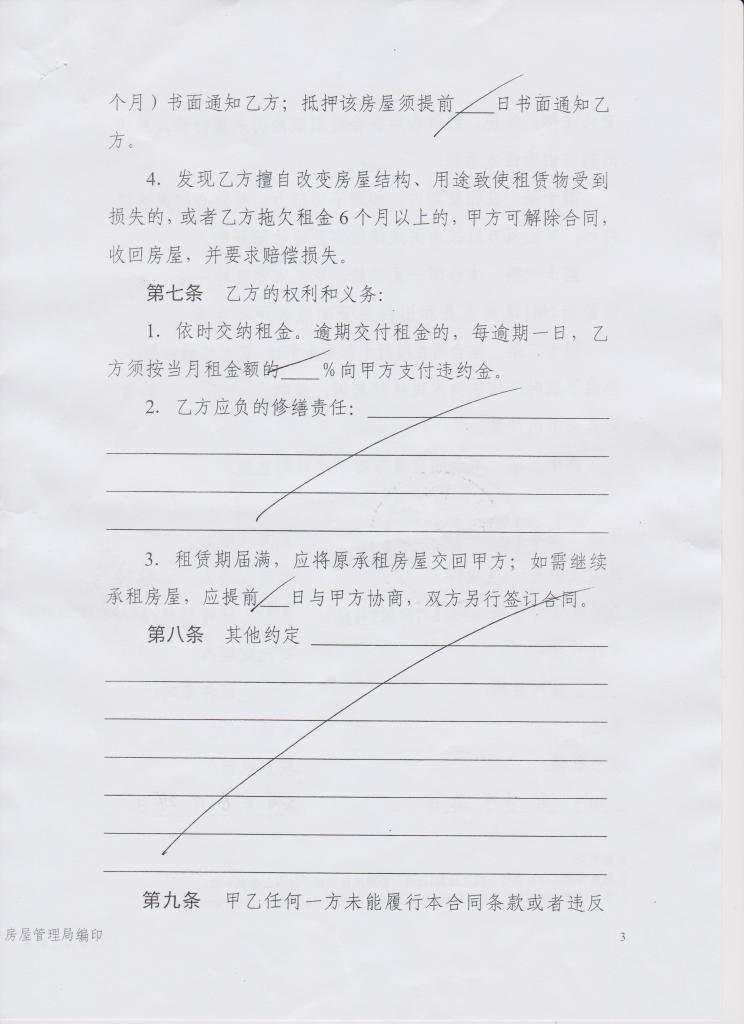 个月）书面通知乙方；抵押该房屋须提前____日书面通知乙
方。
4．发现乙方擅自改变房屋结构、用途致使租赁物受到
损失的，或者乙方拖欠租金6个月以上的，甲方可解除合同，
收回房屋，并要求赔偿损失。
第七条 乙方的权利和义务：
1．依时交纳租金。逾期交付租金的，每逾期一日，乙
方须按当月租金额的____%向甲方支付违约金。
2．乙方应负的修缮责任：
3．租赁期届满，应将原承租房屋交回甲方；如需继续
承租房屋，应提前____日与甲方协商，双方另行签订合同。
第八条 其他约定
第九条 甲乙任何一方未能履行本合同条款或者违反
房屋管理局编印
3